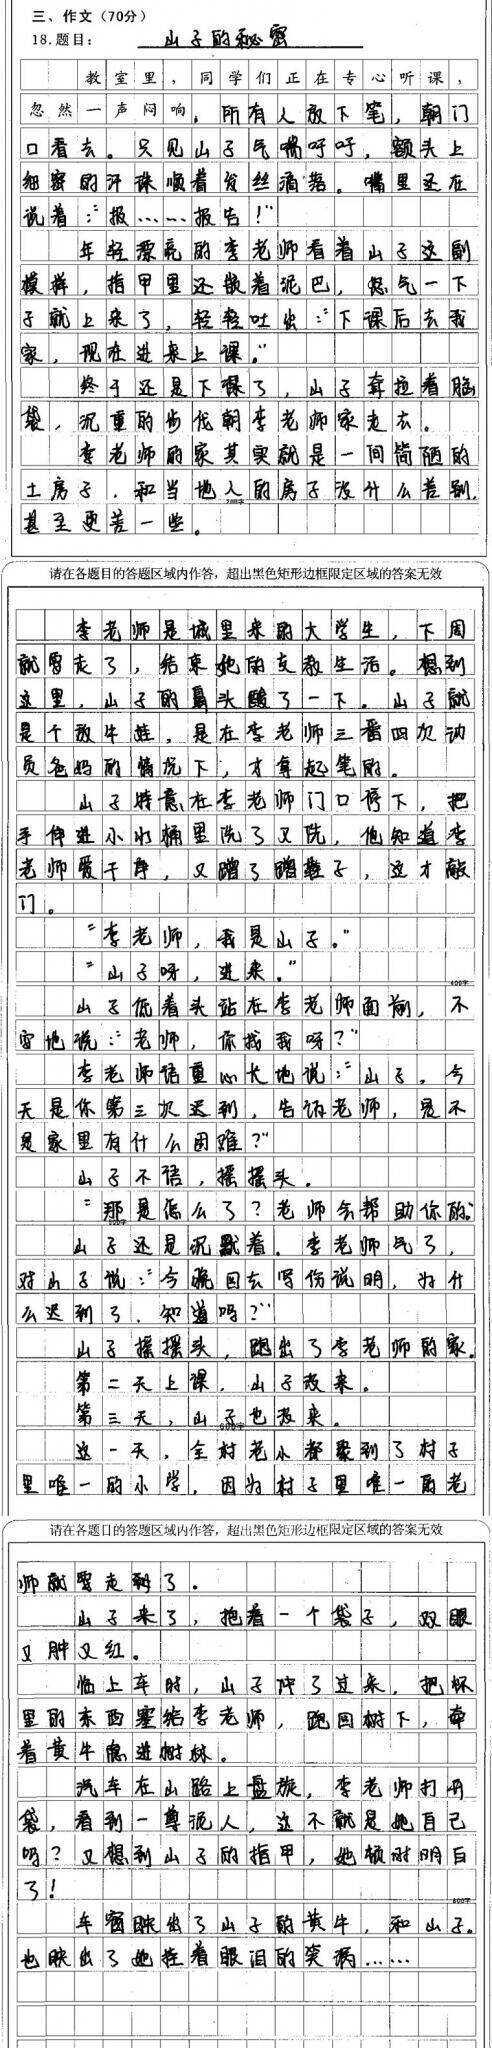 三、作文（70分）
18.题目： 山子的秘密
教室里，同学们正在专心听课，
忽然一声闷响。所有人放下笔，朝门
口看去。只见山子气喘吁吁，额头上
细密的汗珠顺着发丝滴落。嘴里还在
说着：“报……报告！”
年轻漂亮的李老师看着山子这副
模样，指甲里还嵌着泥巴，怒气一下
子就上来了，轻轻吐出：“下课后去我
家，现在进来上课。”
终于还是下课了，山子耷拉着脑
袋，沉重的步伐朝李老师家走去。
李老师的家其实就是一间简陋的
土房子，和当地人的房子没什么差别，
200字
甚至更差一些。
请在各题目的答题区域内作答，超出黑色矩形边框限定区域的答案无效
李老师是城里来的大学生，下周
就要走了，结束她的支教生活。想到
这里，山子的鼻头酸了一下。山子就
是个放牛娃，是在李老师三番四次动
员爸妈的情况下，才拿起笔的。
山子特意在李老师门口停下，把
手伸进小水桶里洗了又洗，他知道李
老师爱干净，又蹭了蹭鞋子，这才敲
门。
“李老师，我是山子。”
“山子呀，进来。”
400字
山子低着头站在李老师面前，不
安地说：“老师，你找我呀？”
李老师语重心长地说：“山子，今
天是你第三次迟到，告诉老师，是不
是家里有什么困难？”
山子不语，摇摇头。
“那是怎么了？老师会帮助你的。”
500字
山子还是沉默着。李老师气了，
对山子说：“今晚回去写份说明，为什
么迟到了，知道吗？”
山子摇摇头，跑出了李老师的家。
第二天上课，山子没来。
第三天，山子也没来。
600字
这一天，全村老小都聚到了村子
里唯一的小学，因为村子里唯一的老
请在各题目的答题区域内作答，超出黑色矩形边框限定区域的答案无效
师就要走了。
山子来了，抱着一个袋子，双眼
又肿又红。
临上车时，山子冲了过来，把怀
里的东西塞给李老师，跑回树下，牵
着黄牛隐进树林。
汽车在山路上盘旋，李老师打开
袋，看到一尊泥人，这不就是她自己
吗？又想到山子的指甲，她顿时明白
了！
800字
车窗映出了山子的黄牛，和山子。
也映出了她挂着眼泪的笑涡……